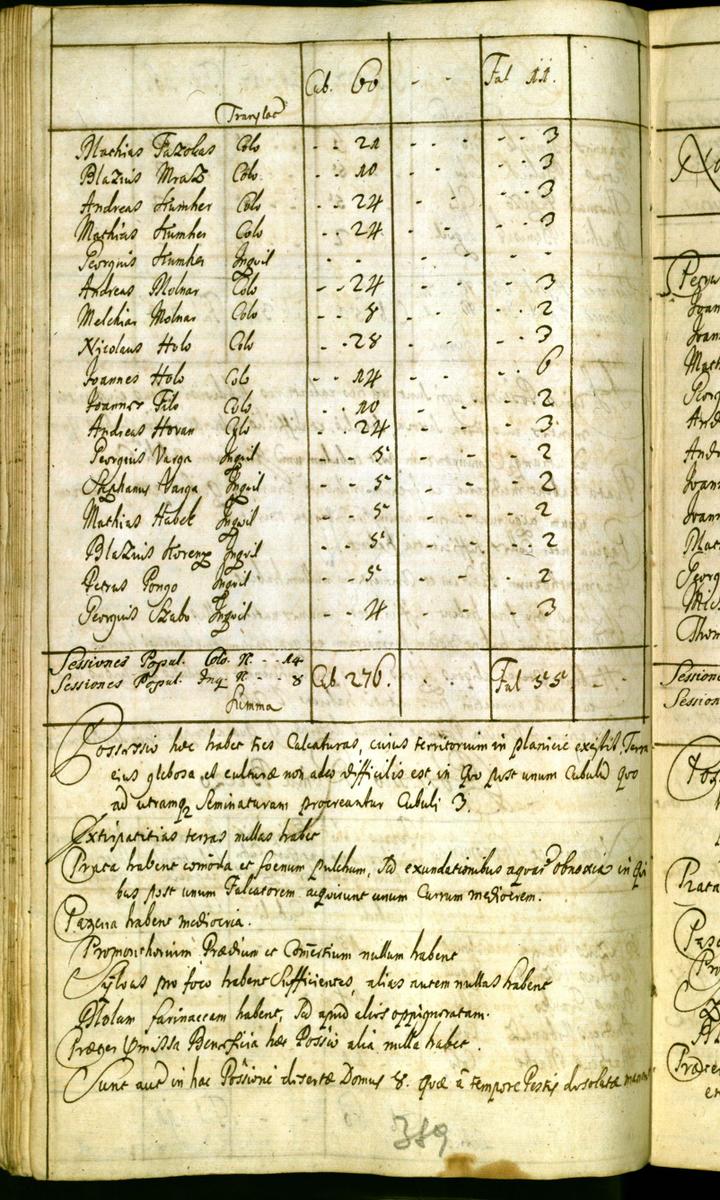 Cub. 60 - - Fal 11.
Translat
Mathias Fazokas Colo - - 21 - - - - 3
Blazius Mraz Colo - - 10 - - - - 3
Andreas Humher Colo - - 24 - - - - 3
Mathias Humher Colo - - 24 - - - - 3
Georgius Humher Inquil - - - - - -
Andreas Molnar Colo - - 24 - - - - 3
Melchiar Molnar Colo - - 8 - - - - 2
Nicolaus Holo Colo - - 28 - - - - 3
Joannes Holo Colo - - 14 - - - - 6
Joannes Filo Colo - - 10 - - - - 2
Andreas Horan Colo - - 24 - - - - 3
Georgius Varga Inquil - - 5 - - - - 2
Stephanus Varga Inquil - - 5 - - - - 2
Mathias Habek Inquil - - 5 - - - - 2
Blazius Inquil - - 5 - - - - 2
Petrus Pongo Inquil - - 5 - - - - 2
Georgius Szabo Inquil - - 4 - - - - 3
Sessiones Popul. Colo. N. - - 14
Sessiones Popul. Inq. N. - - 8 Cub 276. - - Fal 55 - -
Summa
Possessio haec habet tres Calcaturas, cuius territorium in planicie existit Terra
eius glebosa, et culturae non adeo difficilis est, in Quo post unum Cubulu Quo
ad utramq Seminaturam procreantur Cubuli 3.
Extirpatitias terras nullas habet
Prata habent comoda et foenum pulchrum, sed exundationibus aquar obnoxia in Qui
bus post unum Falcatorem acquirunt unum Currum mediocrem.
Pascua habent mediocria.
Promonthorium Praedium et Comertium nullum habent
Sylvas pro foco habent Sufficientes, alias autem nullas habent
Molam farinaceam habent, sed apud alios oppignoratam.
Praeter Praemissa Beneficia haec Possio alia nulla habet.
Sunt aut in hac Possioni desertae Domus 8. quae a tempore Pestis desolatae
389